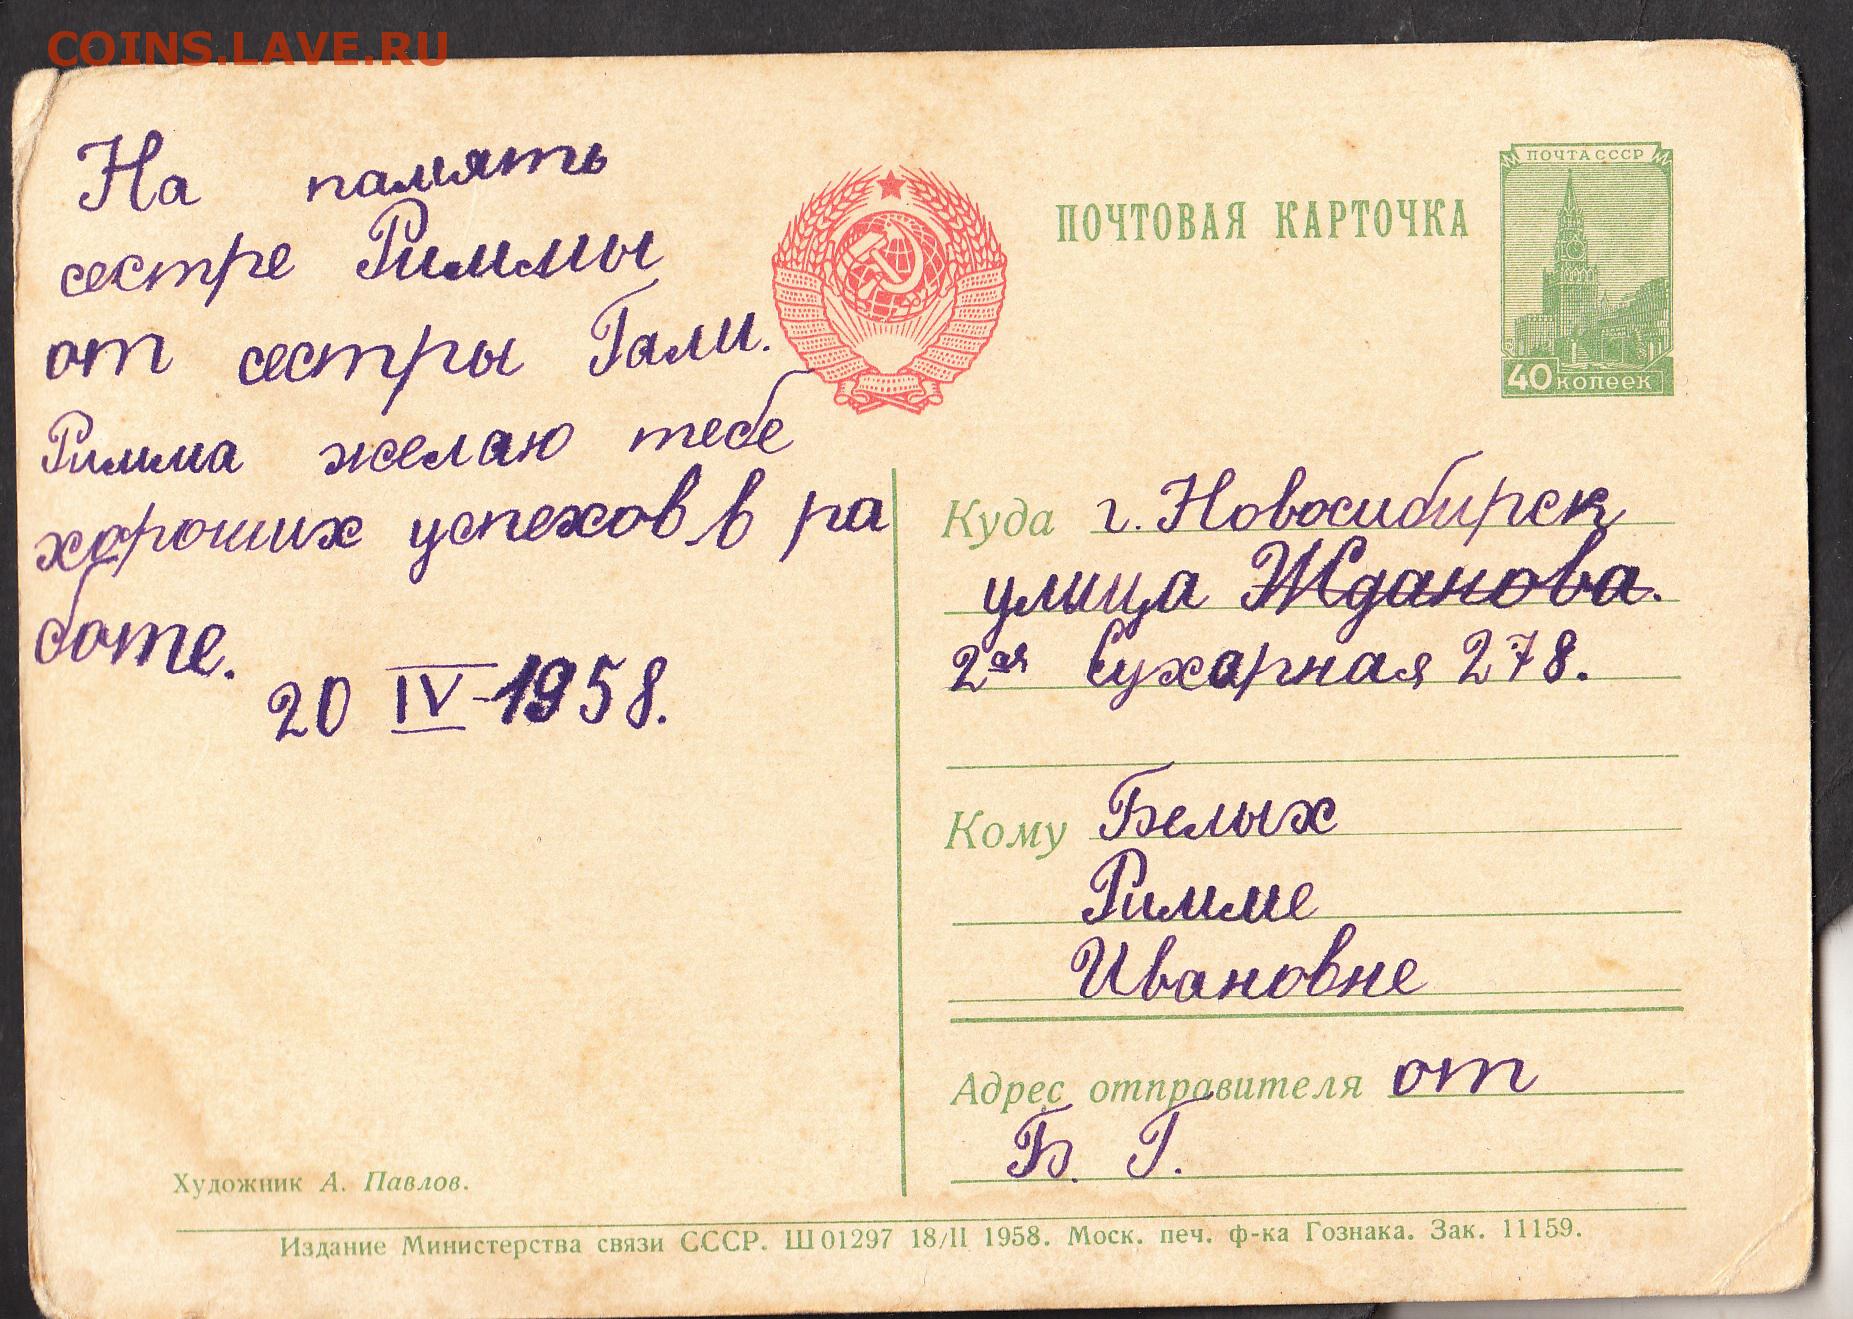 COINS.LAVE.RU
На память
сестре Риммы
от сестры Гали.
Римма желаю тебе
хароших успехов в ра
боте.
20 IV-1958.
ПОЧТОВАЯ КАРТОЧКА
ПОЧТА СССР
40 КОПЕЕК
Куда г. Новосибирск
улица Жданова.
2ая Сухарная 278.
Кому Белых
Римме
Ивановне
Адрес отправителя от
Б. Г.
Художник А. Павлов.
Издание Министерства связи СССР. Ш 01297 18/II 1958. Моск. печ. ф-ка Гознака. Зак. 11159.